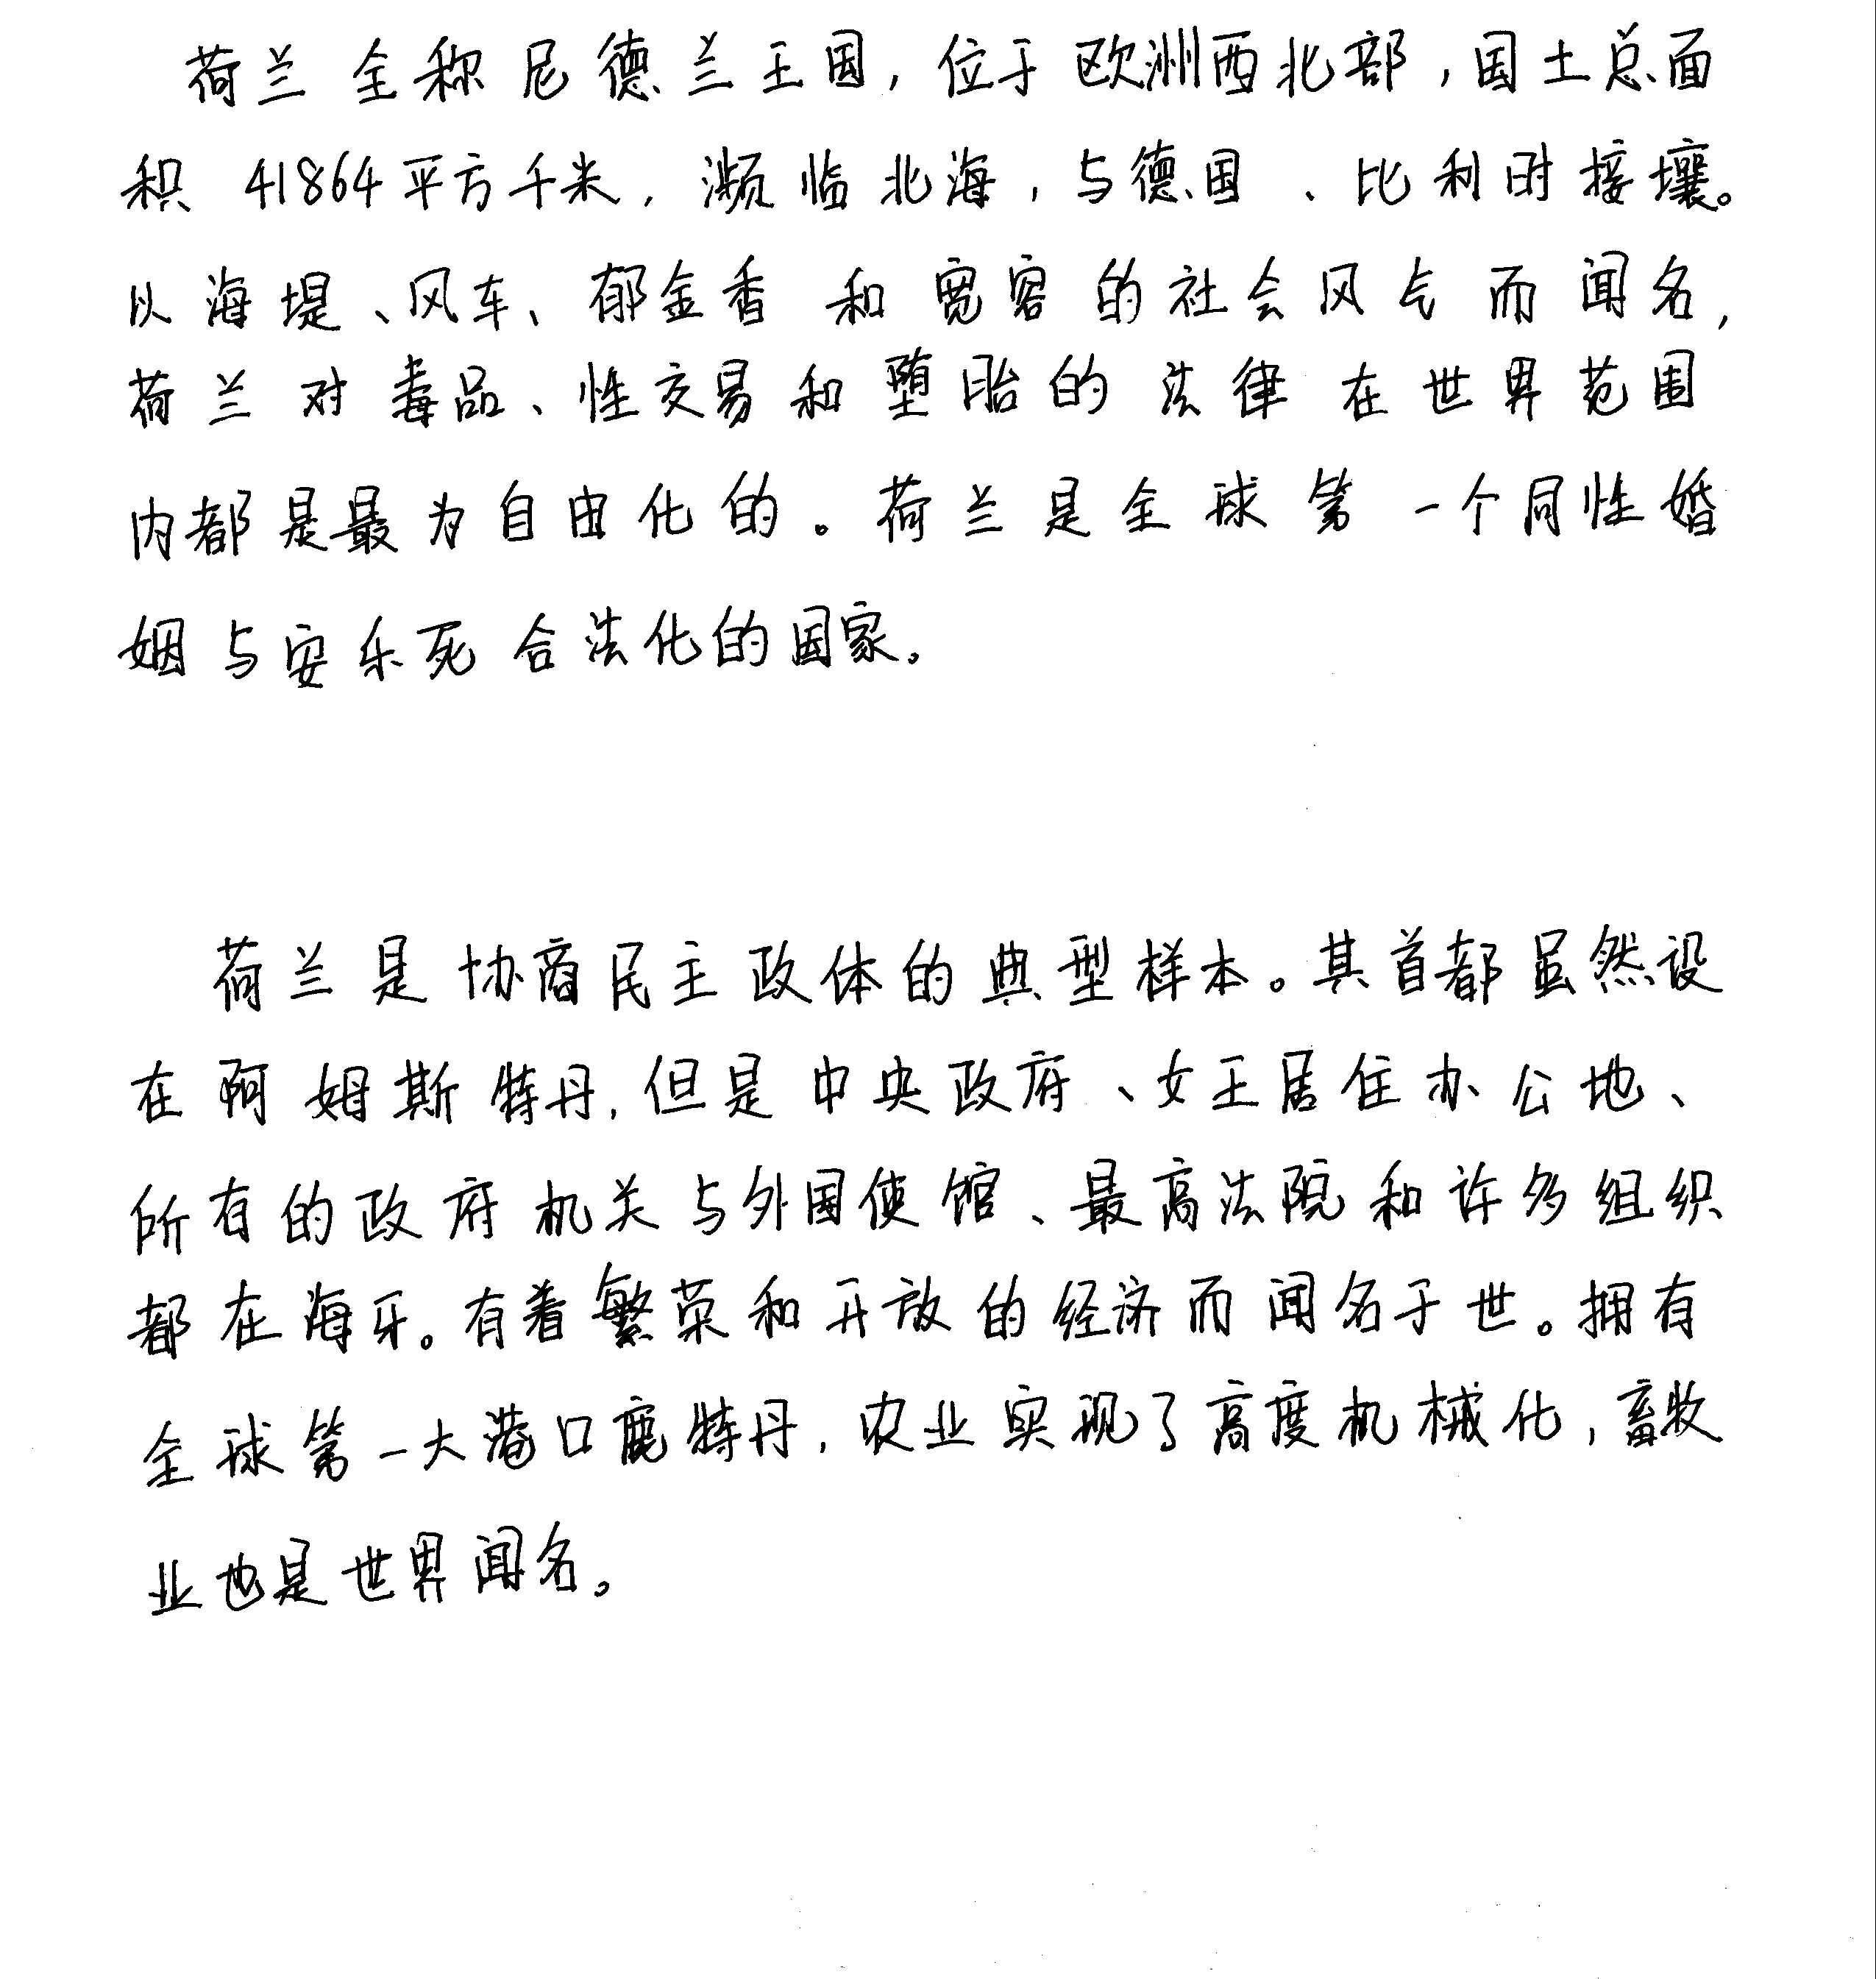 荷兰全称尼德兰王国，位于欧洲西北部，国土总面
积41864平方千米，濒临北海，与德国、比利时接壤。
以海堤、风车、郁金香和宽容的社会风气而闻名，
荷兰对毒品、性交易和堕胎的法律在世界范围
内都是最为自由化的。荷兰是全球第一个同性婚
姻与安乐死合法化的国家。
荷兰是协商民主政体的典型样本。其首都虽然设
在阿姆斯特丹，但是中央政府、女王居住办公地、
所有的政府机关与外国使馆、最高法院和许多组织
都在海牙。有着繁荣和开放的经济而闻名于世。拥有
全球第一大港口鹿特丹，农业实现了高度机械化，畜牧
业也是世界闻名。